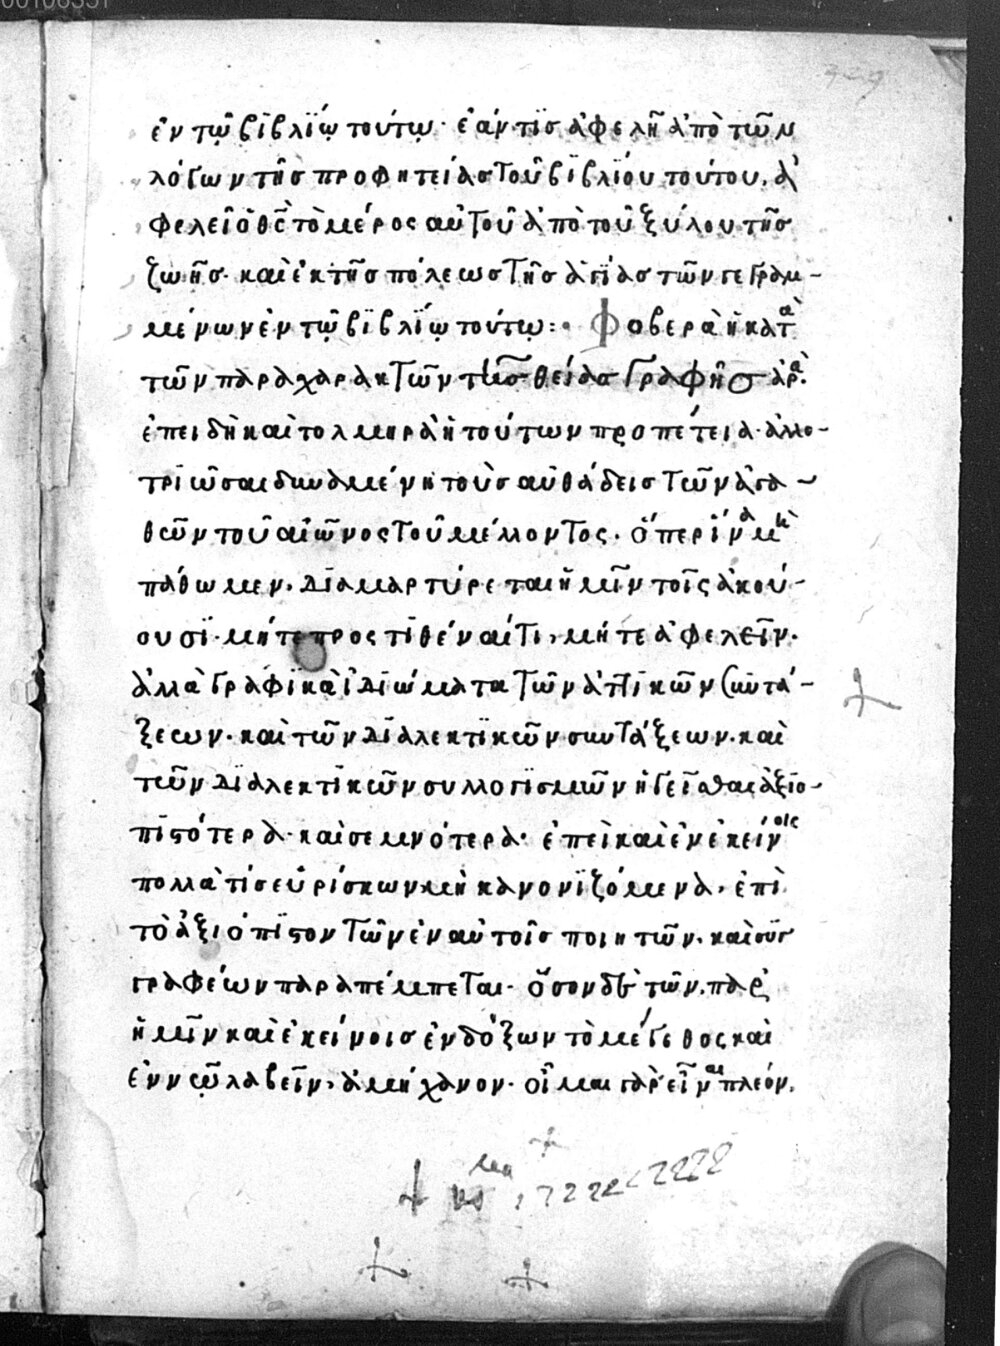 ἐν τῷ βιβλίῳ τούτῳ· ἐάν τις ἀφέλῃ ἀπὸ τῶν
λόγων τῆς προφητείας τοῦ βιβλίου τούτου, ἀ
φελεῖ ὁ θς τὸ μέρος αὐτοῦ ἀπὸ τοῦ ξύλου τῆς
ζωῆς· καὶ ἐκ τῆς πόλεως τῆς ἁγίας τῶν γεγραμ-
μένων ἐν τῷ βιβλίῳ τούτῳ:· Φοβερὰ ἡ κατὰ
τῶν παραχαρακτῶν τῆς θείας γραφῆς ἀρά.
ἐπειδὴ καὶ τολμηρὰ ἡ τούτων προπέτεια· ἀλλο-
τριῶσαι δυναμένη τοὺς αὐθάδεις τῶν ἀγα-
θῶν τοῦ αἰῶνος τοῦ μέλλοντος. ὅπερ ἵνα μὴ
πάθωμεν, διαμαρτύρεται ἡμῖν τοῖς ἀκού-
ουσι· μήτε προστιθέναι τι, μήτε ἀφελεῖν.
ἀλλὰ γραφικὰ ἰδιώματα τῶν ἀττικῶν συντά-
ξεων· καὶ τῶν διαλεκτικῶν συντάξεων· καὶ
τῶν διαλεκτικῶν συλλογισμῶν ἡγεῖσθαι ἀξιο-
πιστότερα· καὶ σεμνότερα· ἐπεὶ καὶ ἐν ἐκείνοις
πολλά τις εὑρίσκων μὴ κανονιζόμενα, ἐπὶ
τὸ ἀξιόπιστον τῶν ἐν αὐτοῖς ποιητῶν· καὶ συγ
γραφέων παραπέμπεται· ὅσον δὲ τῶν παρ
ἡμῖν καὶ ἐκείνοις ἐνδόξων τὸ μέγεθος καὶ
ἐν νῷ λαβεῖν, ἀμήχανον· οἶμαι γὰρ εἶναι πλέον,